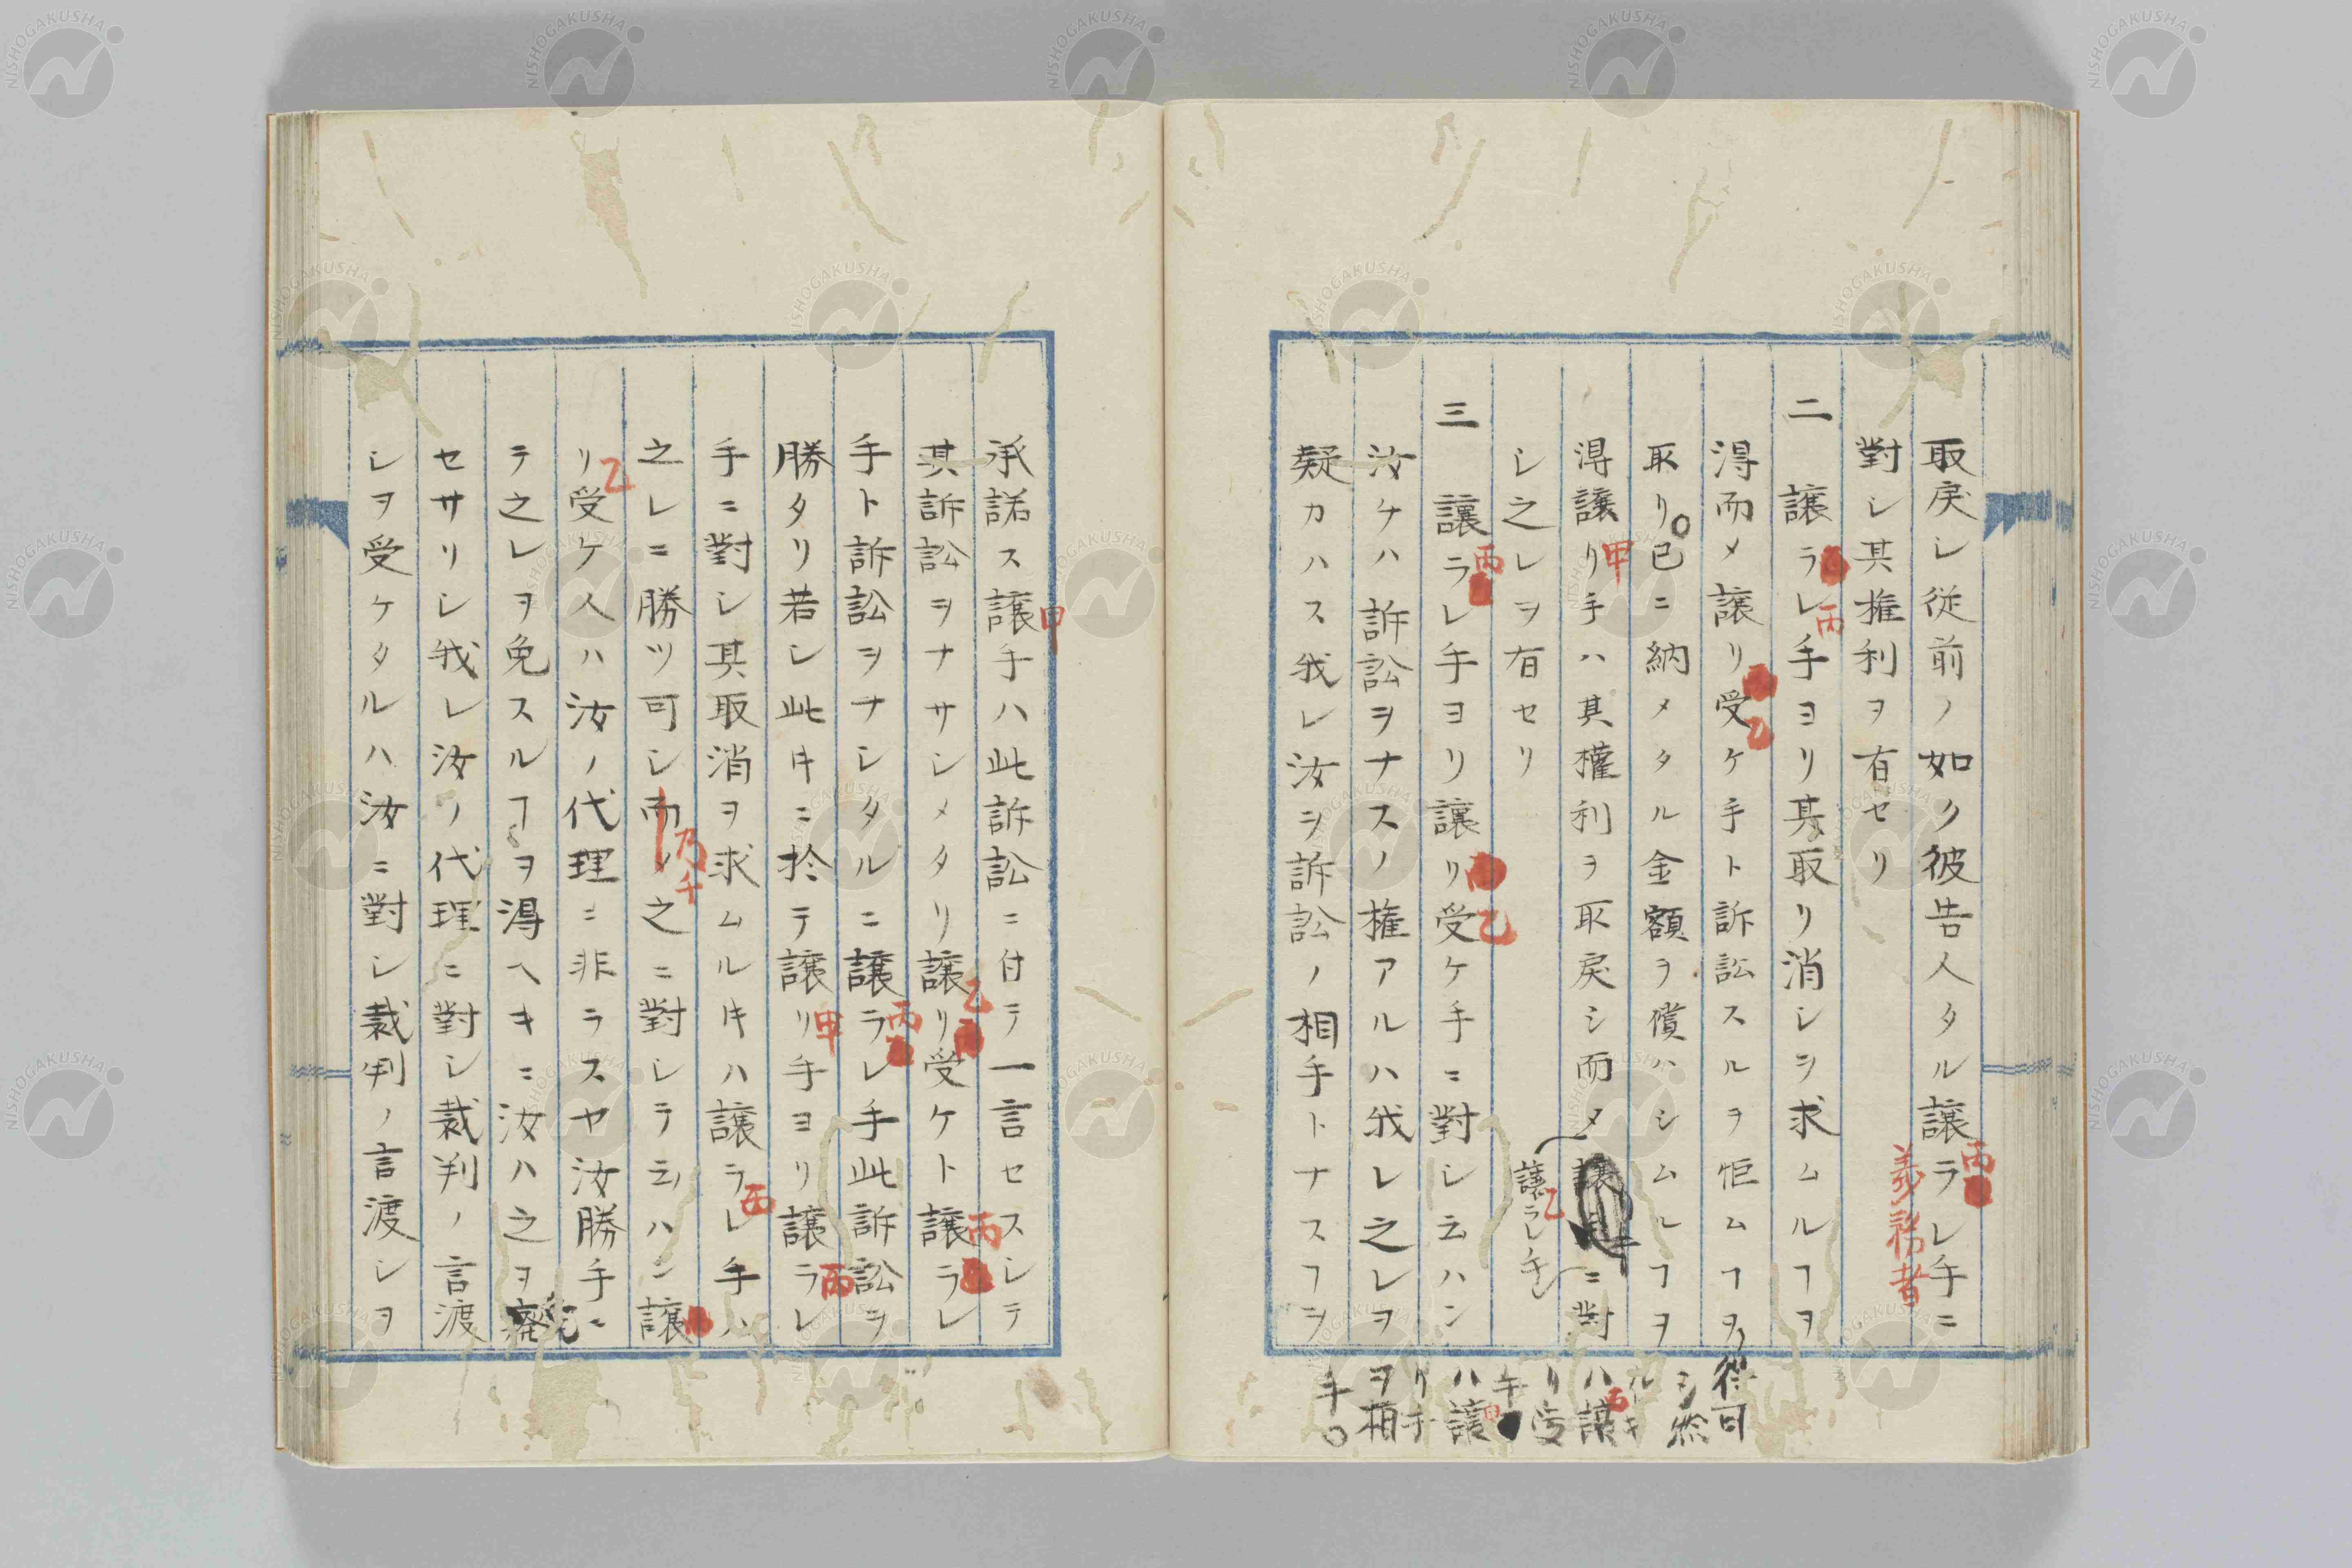 取戻シ従前ノ如ク彼告人タル譲ラレ手ニ
丙
義務者
對シ其権利ヲ有セリ
二 譲ラレ手ヨリ其取リ消シヲ求ムルヿヲ
丙
得而メ譲リ受ケ手ト訴訟スルヲ拒ムヿヲ
乙
得可
シ然
取リ已ニ納メタル金額ヲ償ハシムルヿヲ
得譲リ手ハ其權利ヲ取戻シ而メ
甲
ニ對
譲ラレ手
乙
シ之レヲ有セリ
三 讓ラレ手ヨリ讓リ受ケ手ニ對シ云ハン
丙
乙
汝ケハ訴訟ヲナスノ権アルハ我レ之レヲ
疑カハス我レ汝ヲ訴訟ノ相手トナスヿヲ
ハ譲
リ受
ハ讓
リ手
ヲ相
手
承諾ス譲手ハ此訴訟ニ付テ一言セスシテ
甲
其訴訟ヲナサシメタリ譲リ受ケト譲ラレ
乙
丙
手ト訴訟ヲナシタルニ譲ラレ手此訴訟ヲ
丙
勝タリ若シ此キニ於テ譲リ手ヨリ譲ラレ
甲
丙
手ニ對シ其取消ヲ求ムルキハ譲ラレ手ハ
丙
之レニ勝ツ可シ而メ之ニ對シテ云ハン譲
乃チ
リ受ケ人ハ汝ノ代理ニ非ラスヤ汝勝手ニ
乙
テ之レヲ免スルヿヲ得ヘキニ汝ハ之ヲ
セサリシ我レ汝ノ代理ニ對シ裁判ノ言渡
シヲ受ケタルハ汝ニ對シ裁判ノ言渡シヲ
NISHOGAKUSHA